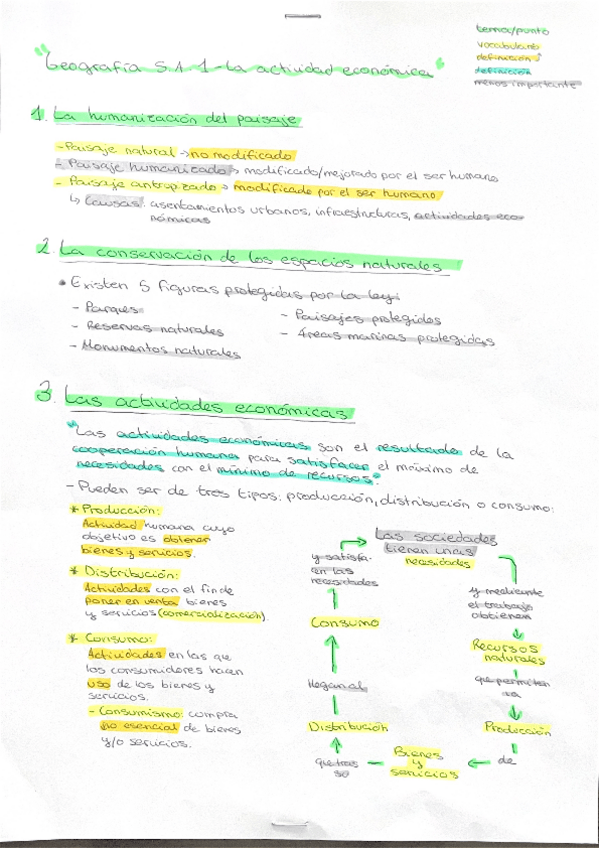 tema/punto
vocabulario
definición
definición
menos importante
"Geografía 5.1.1-La actividad económica"
1. La humanización del paisaje
-Paisaje natural → no modificado
- Paisaje humanizado → modificado/mejorado por el ser humano
- Paisaje antropizado → modificado por el ser humano
↳ Causas: asentamientos urbanos, infraestructuras, actividades eco-
nómicas
2. La conservación de los espacios naturales
• Existen 5 figuras protegidas por la ley:
- Parques
- Reservas naturales
- Monumentos naturales
- Paisajes protegidos
- Áreas marinas protegidas
3. Las actividades económicas
"Las actividades económicas son el resultado de la
cooperación humana para satisfacer el máximo de
necesidades con el mínimo de recursos."
- Pueden ser de tres tipos: producción, distribución o consumo:
* Producción:
Actividad humana cuyo
objetivo es obtener
bienes y servicios.
* Distribución:
Actividades con el fin de
poner en venta bienes
y servicios (comercialización).
* Consumo:
Actividades en las que
los consumidores hacen
uso de los bienes y
servicios.
- Consumismo: compra
no esencial de bienes
y/o servicios.
Las sociedades
tienen unas
necesidades
y mediante
el trabajo
obtienen
Recursos
naturales
que permiten
la
Producción
de
Bienes
y
servicios
que tras
su
Distribución
llegan al
Consumo
y satisfa-
cen las
necesidades